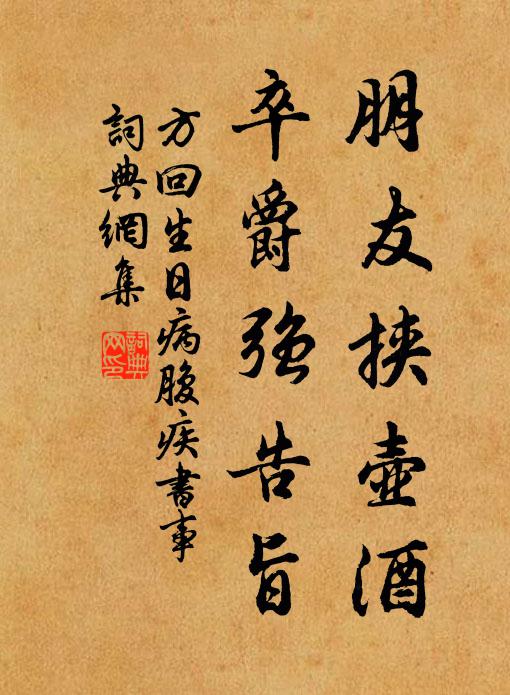 朋友挾壺酒
卒爵強告旨
方回生日病腹疾書事
詞典網集
詞典
网印